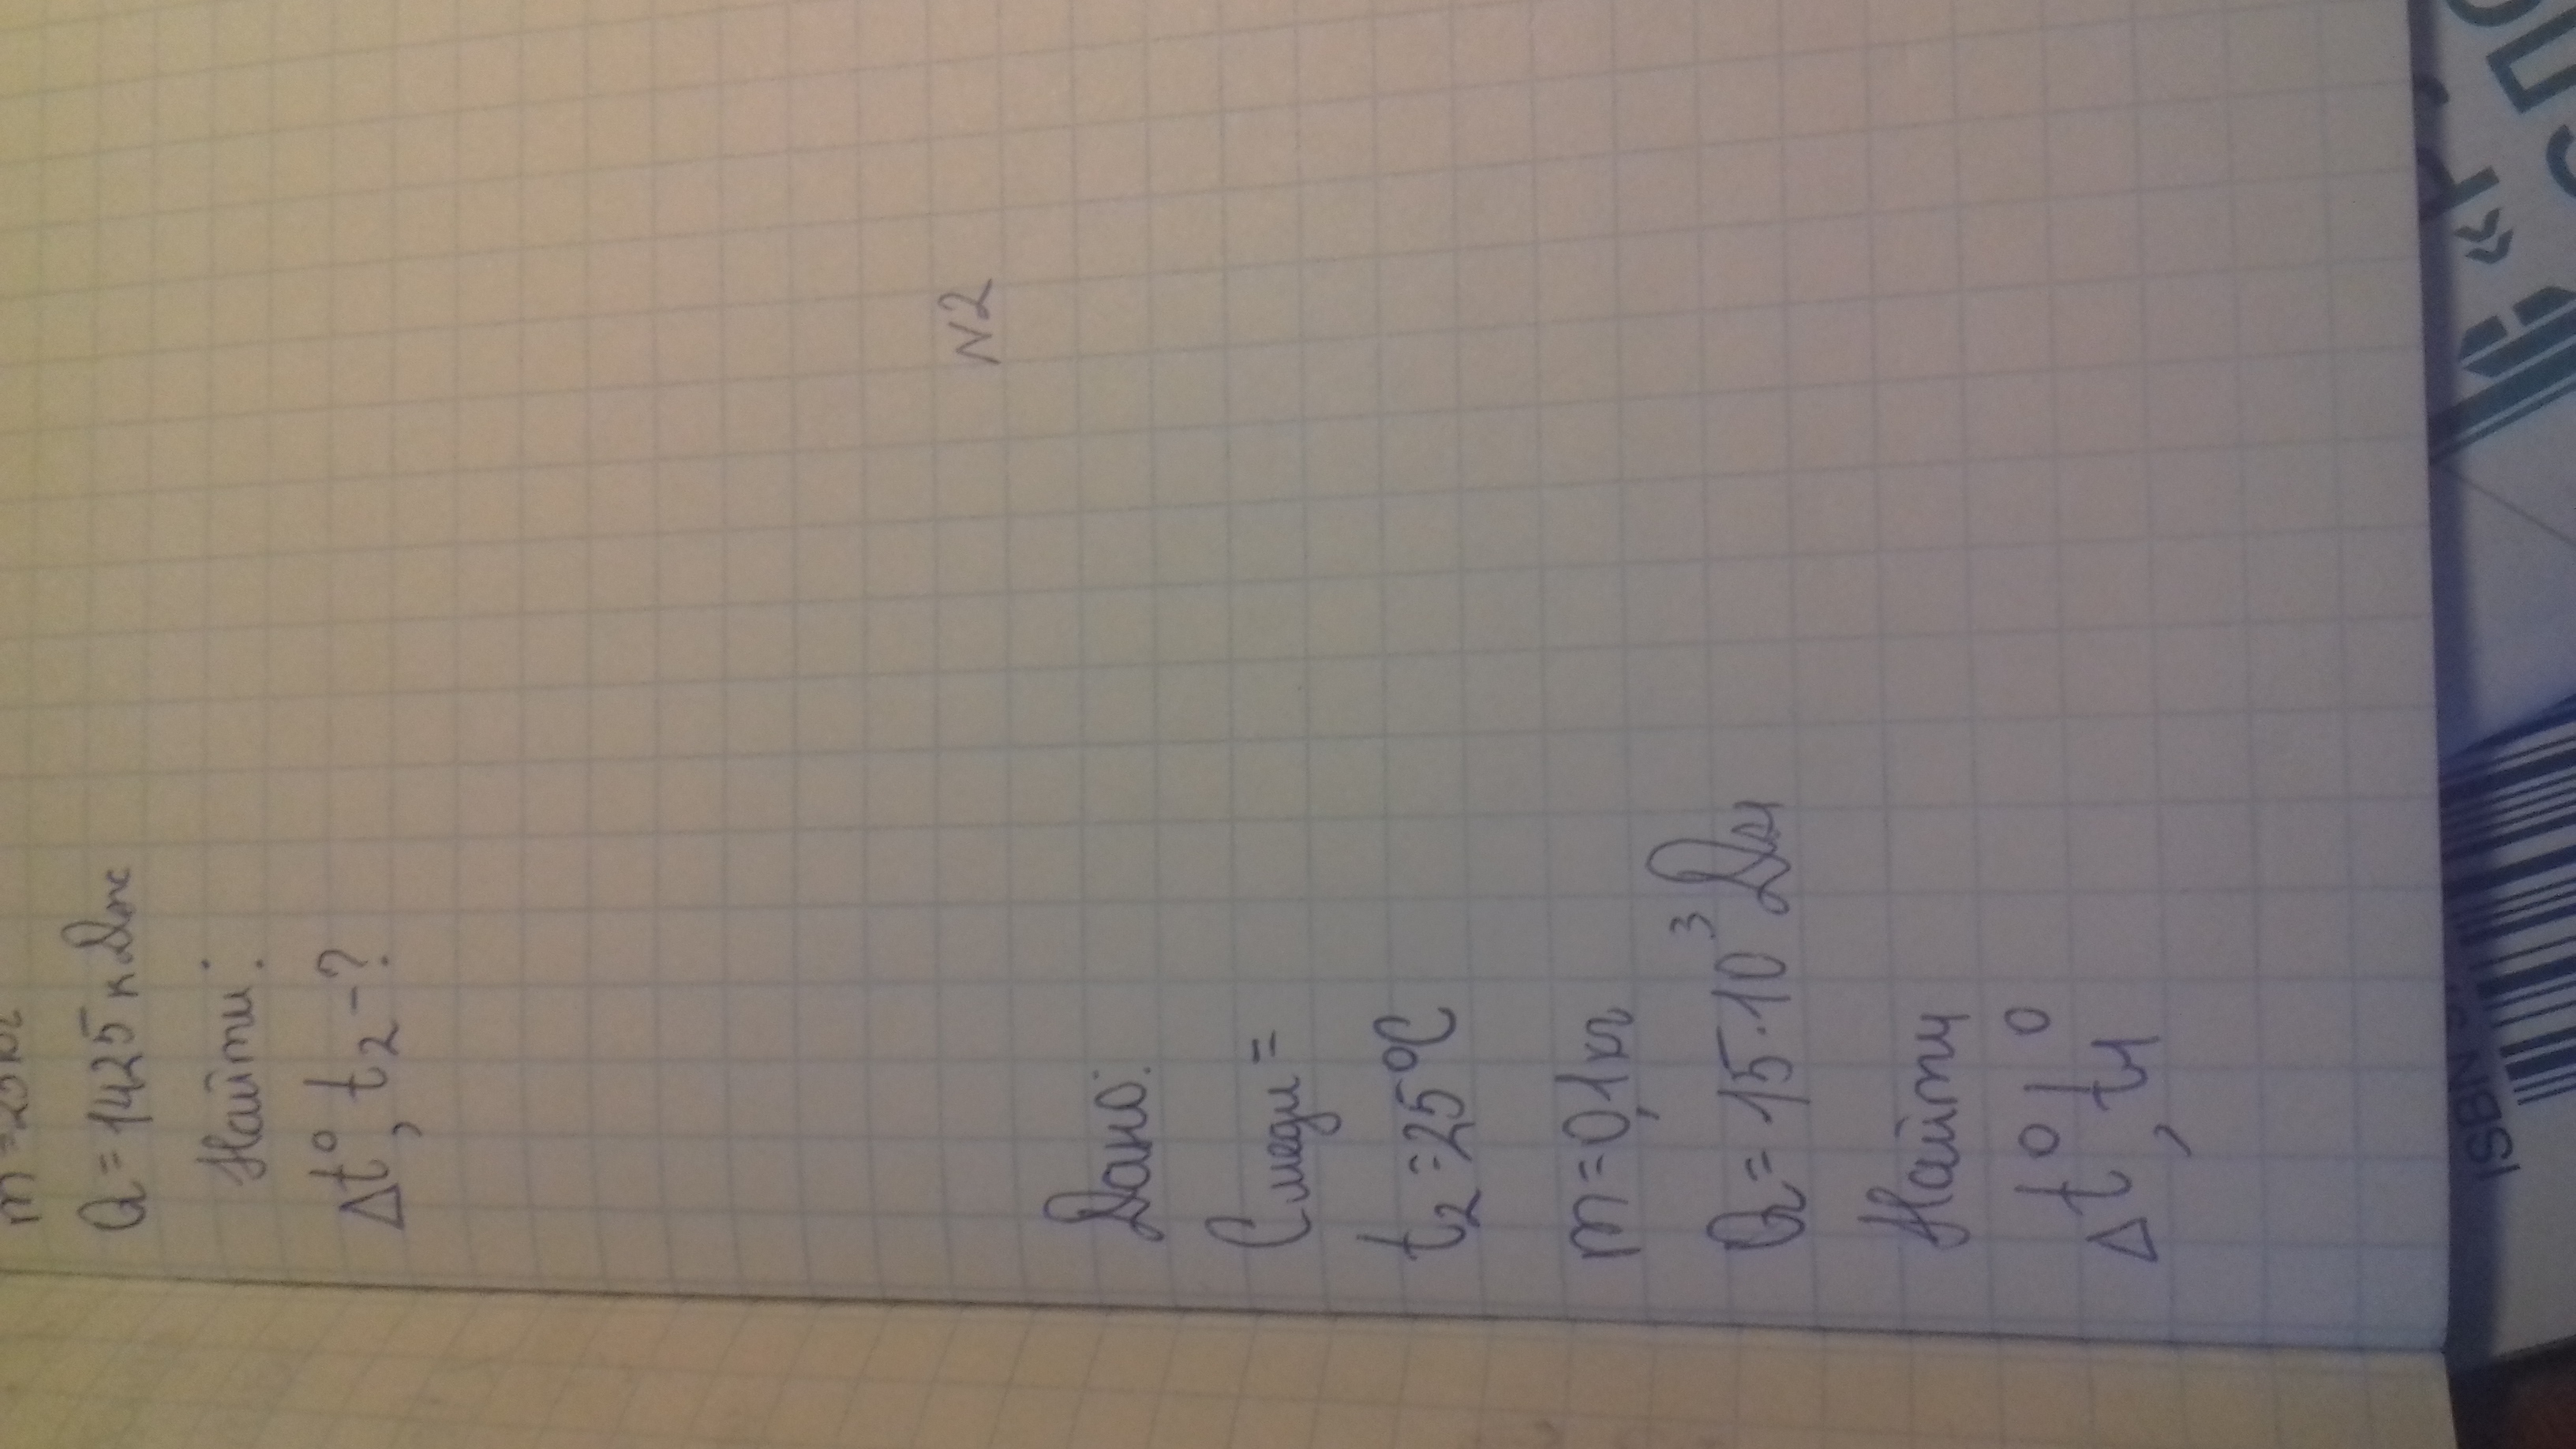 Q = 1425 кДж
Найти:
Δt°, t₂ - ?
N2
Дано:
Cмеди =
t₂ = 25°C
m = 0,1 кг
Q = 15·10³ Дж
Найти
Δt°, t₁°
ISBN